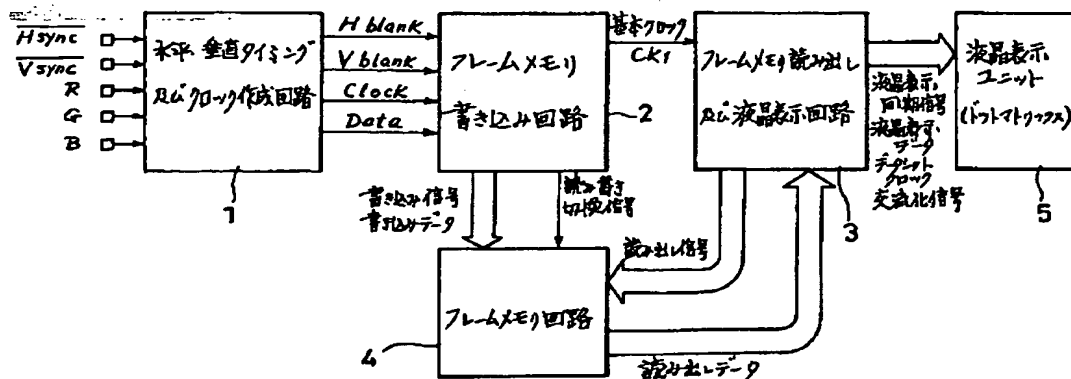 Hsync
Vsync
R
G
B
水平垂直タイミング
及びクロック作成回路
1
H blank
V blank
Clock
Data
フレームメモリ
書き込み回路
2
基本クロック
CK1
フレームメモリ読み出し
及び液晶表示回路
3
液晶表示
同期信号
液晶表示
データ
データシフト
クロック
交流化信号
液晶表示
ユニット
(ドットマトリックス)
5
書き込み信号
書き込みデータ
読み書き
切換信号
読み出し信号
フレームメモリ回路
4
読み出しデータ